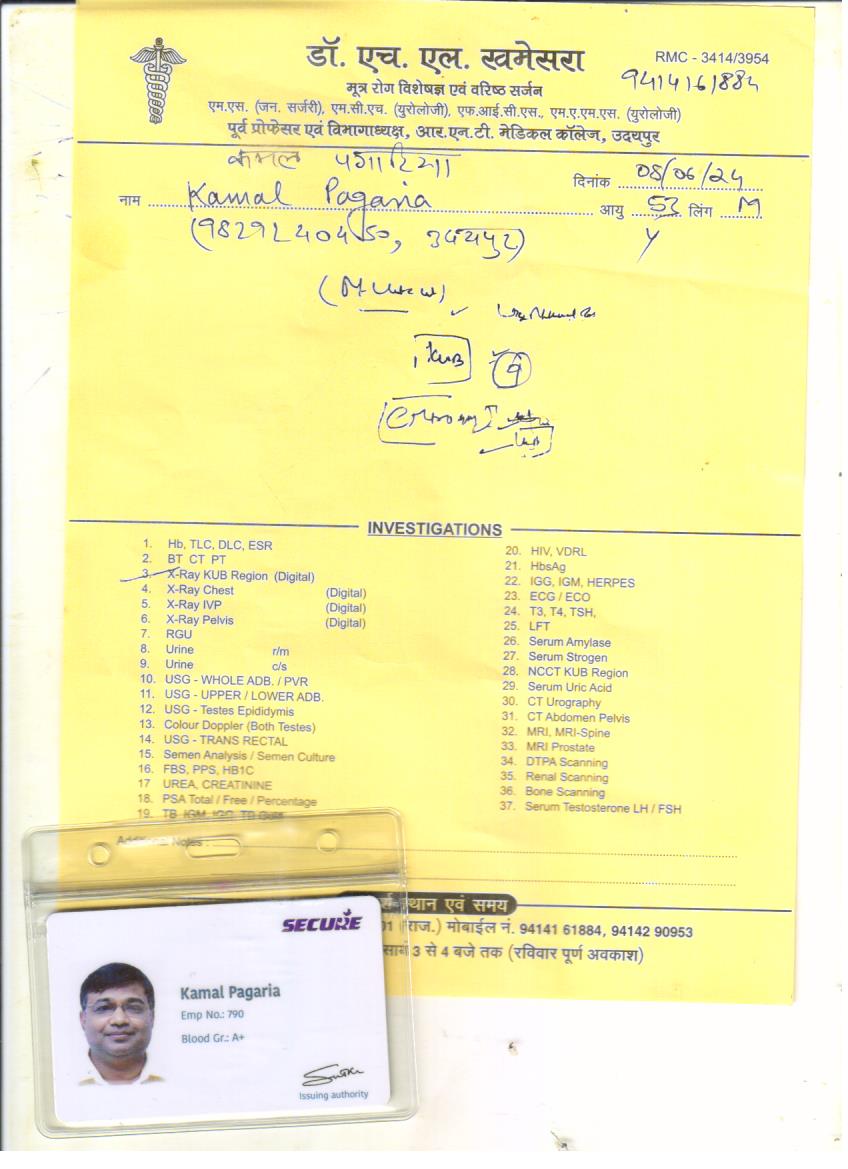 डॉ. एच. एल. खमेसरा
RMC - 3414/3954
9414161884
मूत्र रोग विशेषज्ञ एवं वरिष्ठ सर्जन
एम.एस. (जन. सर्जरी), एम.सी.एच. (युरोलोजी), एफ.आई.सी.एस., एम.ए.एम.एस. (युरोलोजी)
पूर्व प्रोफेसर एवं विभागाध्यक्ष, आर.एन.टी. मेडिकल कॉलेज, उदयपुर
कमल पगारिया
दिनांक 08/06/24
नाम Kamal Pagaria आयु 53 लिंग M
(9829240450, उदयपुर) Y
KUB
KUB
INVESTIGATIONS
1. Hb, TLC, DLC, ESR
2. BT CT PT
3. X-Ray KUB Region (Digital)
4. X-Ray Chest (Digital)
5. X-Ray IVP (Digital)
6. X-Ray Pelvis (Digital)
7. RGU
8. Urine r/m
9. Urine c/s
10. USG - WHOLE ADB. / PVR
11. USG - UPPER / LOWER ADB.
12. USG - Testes Epididymis
13. Colour Doppler (Both Testes)
14. USG - TRANS RECTAL
15. Semen Analysis / Semen Culture
16. FBS, PPS, HB1C
17 UREA, CREATININE
18. PSA Total / Free / Percentage
19. TB IGM, IGG, TB Gold
20. HIV, VDRL
21. HbsAg
22. IGG, IGM, HERPES
23. ECG / ECO
24. T3, T4, TSH,
25. LFT
26. Serum Amylase
27. Serum Strogen
28. NCCT KUB Region
29. Serum Uric Acid
30. CT Urography
31. CT Abdomen Pelvis
32. MRI, MRI-Spine
33. MRI Prostate
34. DTPA Scanning
35. Renal Scanning
36. Bone Scanning
37. Serum Testosterone LH / FSH
Additional Notes :
स्थान एवं समय
01 (राज.) मोबाईल नं. 94141 61884, 94142 90953
सायं 3 से 4 बजे तक (रविवार पूर्ण अवकाश)
SECURE
Kamal Pagaria
Emp No.: 790
Blood Gr.: A+
Issuing authority